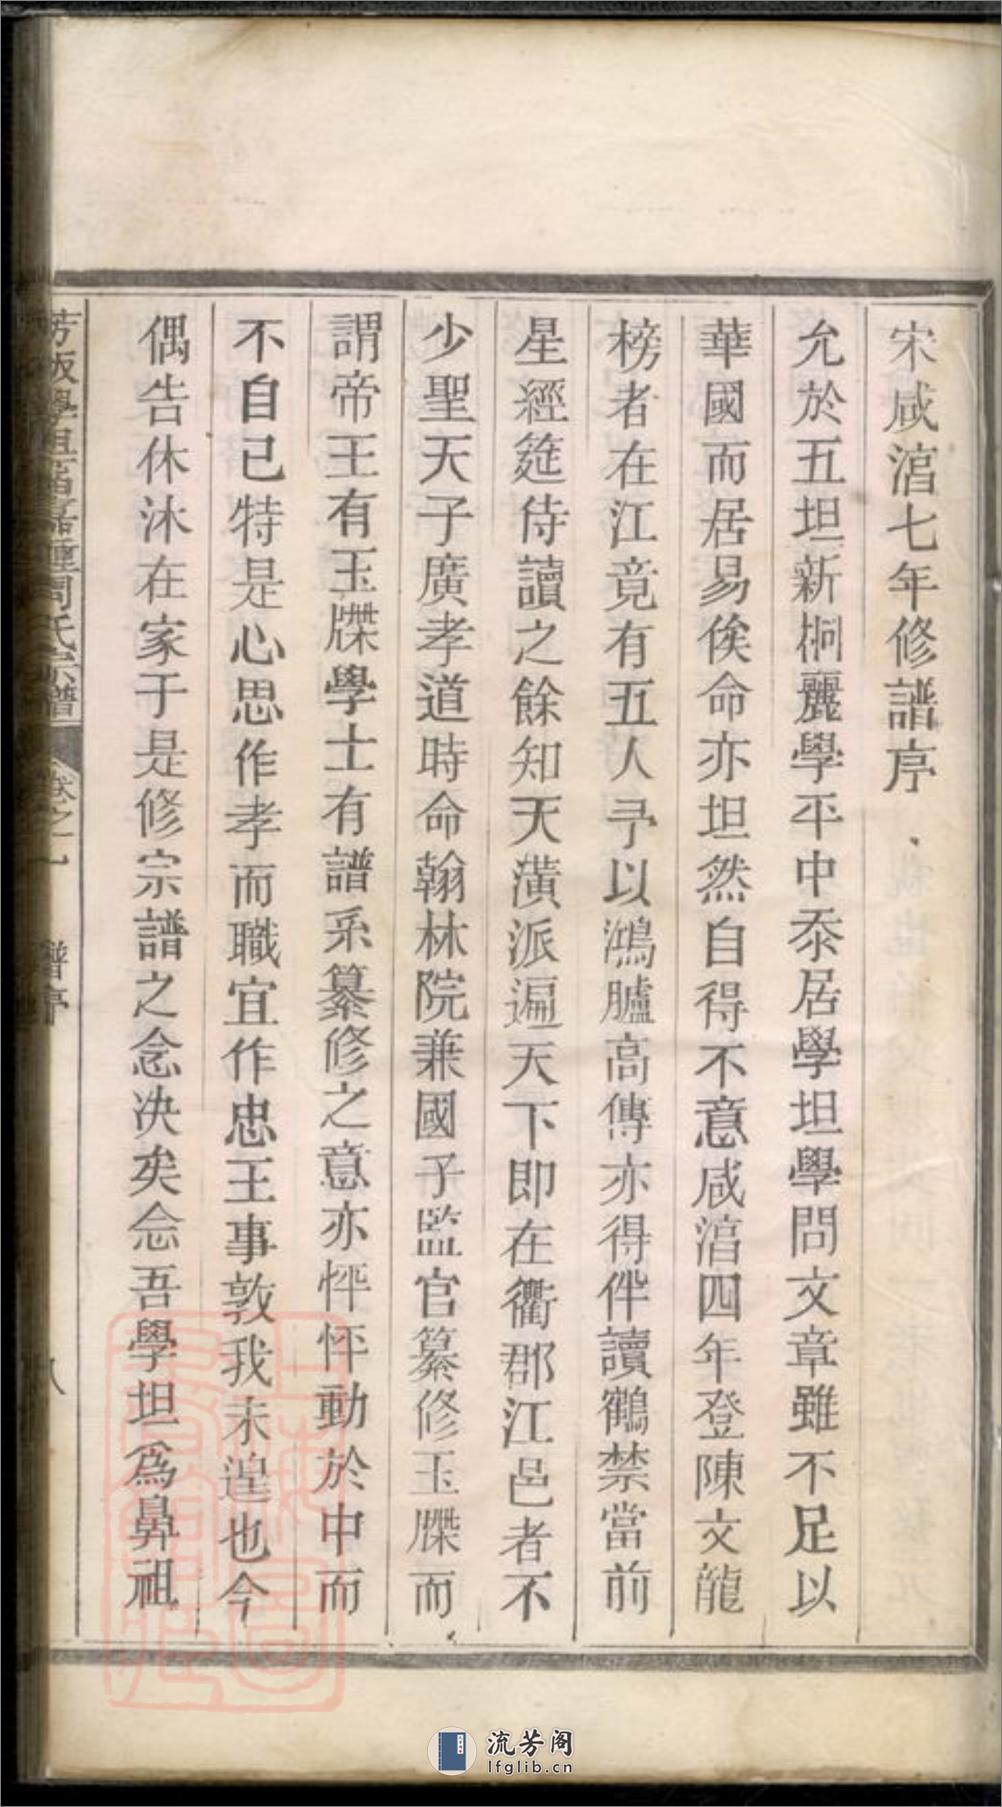 宋咸淳七年修譜序
允於五坦新桐麗學平中忝居學坦學問文章雖不足以
華國而居易俟命亦坦然自得不意咸淳四年登陳文龍
榜者在江竟有五人予以鴻臚高傳亦得伴讀鶴禁當前
星經筵侍讀之餘知天潢派遍天下即在衢郡江邑者不
少聖天子廣孝道時命翰林院兼國子監官纂修玉牒而
謂帝王有玉牒學士有譜系纂修之意亦怦怦動於中而
不自已特是心思作孝而職宜作忠王事敦我未遑也今
偶告休沐在家于是修宗譜之念决矣念吾學坦為鼻祖
學坦 周氏宗譜 卷之一 譜序 八
流芳阁
lfglib.cn